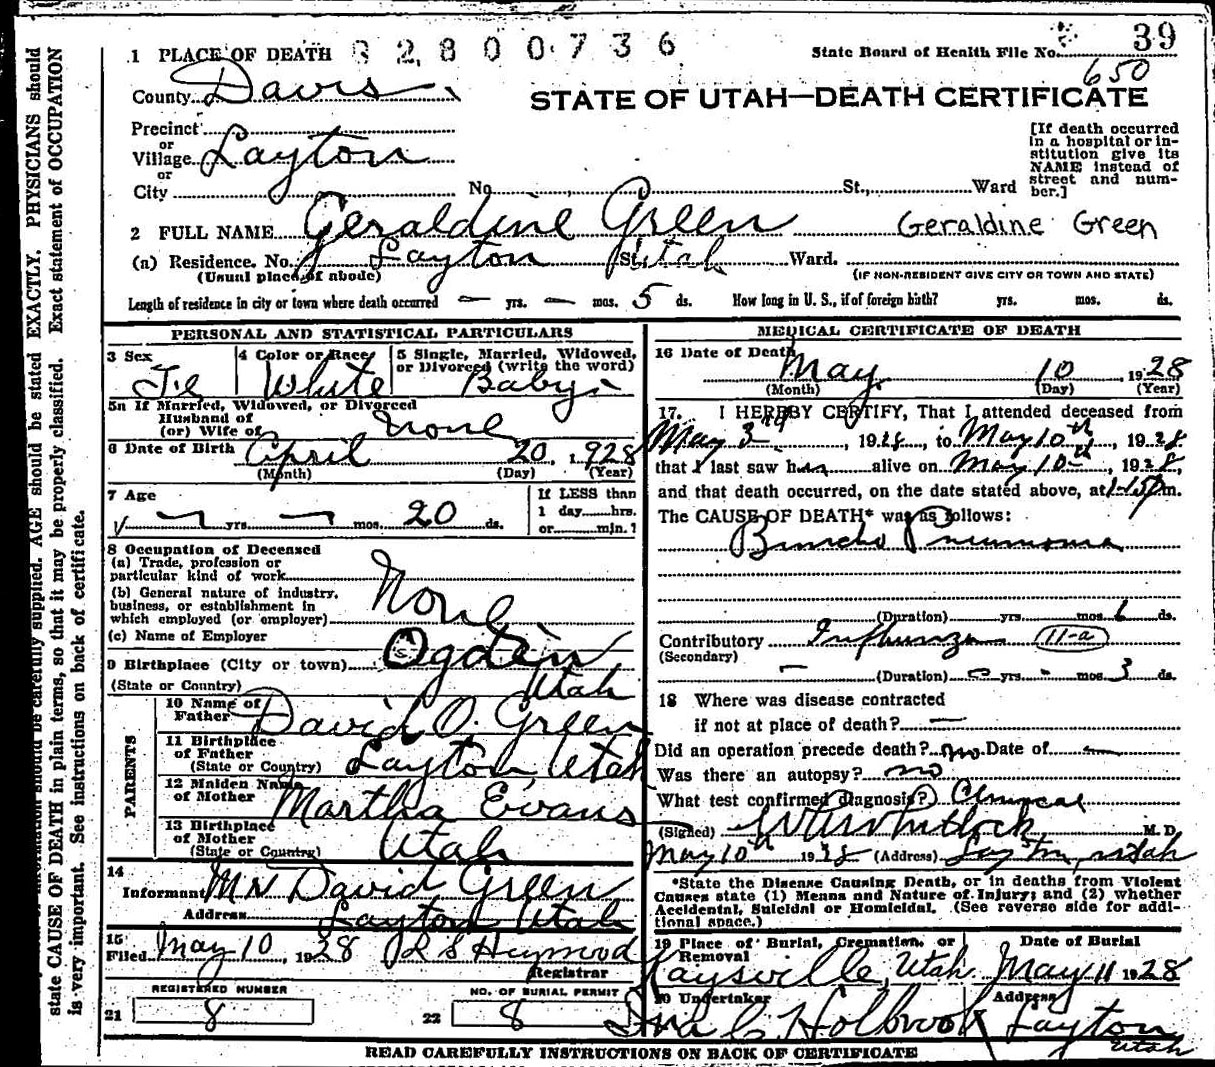 39
1 PLACE OF DEATH 2 8 0 0 7 3 6
State Board of Health File No.
650
County Davis
STATE OF UTAH—DEATH CERTIFICATE
Precinct
or
Village Layton
or
City No. St., Ward
[If death occurred
in a hospital or in-
stitution give its
NAME instead of
street and num-
ber.]
2 FULL NAME Geraldine Green Geraldine Green
(a) Residence. No. Layton St. Utah Ward.
(Usual place of abode) (IF NON-RESIDENT GIVE CITY OR TOWN AND STATE)
Length of residence in city or town where death occurred — yrs. — mos. 5 ds. How long in U. S., if of foreign birth? yrs. mos. ds.
PERSONAL AND STATISTICAL PARTICULARS
3 Sex 4 Color or Race 5 Single, Married, Widowed,
or Divorced (write the word)
Fe White Baby
5a If Married, Widowed, or Divorced
Husband of
(or) Wife of None
6 Date of Birth April 20, 1928
(Month) (Day) (Year)
7 Age
— yrs. — mos. 20 ds.
If LESS than
1 day hrs.
or min.?
8 Occupation of Deceased
(a) Trade, profession or
particular kind of work
(b) General nature of industry,
business, or establishment in
which employed (or employer) None
(c) Name of Employer
9 Birthplace (City or town) Ogden
(State or Country) Utah
PARENTS
10 Name of
Father David O. Green
11 Birthplace
of Father
(State or Country) Layton, Utah
12 Maiden Name
of Mother Martha Evans
13 Birthplace
of Mother
(State or Country) Utah
14
Informant Mr David Green
Address Layton Utah
15
Filed May 10, 1928
Registrar
REGISTERED NUMBER
21 8
NO. OF BURIAL PERMIT
22 8
MEDICAL CERTIFICATE OF DEATH
16 Date of Death
May 10, 1928
(Month) (Day) (Year)
17. I HEREBY CERTIFY, That I attended deceased from
May 3rd, 1928, to May 10th, 1928
that I last saw her alive on May 10th, 1928,
and that death occurred, on the date stated above, at 1-15 Pm.
The CAUSE OF DEATH* was as follows:
Broncho Pneumonia
(Duration) yrs. mos. 6 ds.
Contributory Influenza 11-a
(Secondary)
(Duration) yrs. mos. 3 ds.
18 Where was disease contracted
if not at place of death? —
Did an operation precede death? no Date of —
Was there an autopsy? no
What test confirmed diagnosis? Clinical
(Signed) Whitlock, M. D.
May 10th 1928 (Address) Layton, Utah
*State the Disease Causing Death, or in deaths from Violent
Causes state (1) Means and Nature of Injury; and (2) whether
Accidental, Suicidal or Homicidal. (See reverse side for addi-
tional space.)
19 Place of Burial, Cremation, or
Removal Date of Burial
Kaysville, Utah May 11 1928
20 Undertaker Address
Ira C. Holbrook Layton
Utah
READ CAREFULLY INSTRUCTIONS ON BACK OF CERTIFICATE
should be carefully supplied. AGE should be stated EXACTLY. PHYSICIANS should
state CAUSE OF DEATH in plain terms, so that it may be properly classified. Exact statement of OCCUPATION
is very important. See instructions on back of certificate.